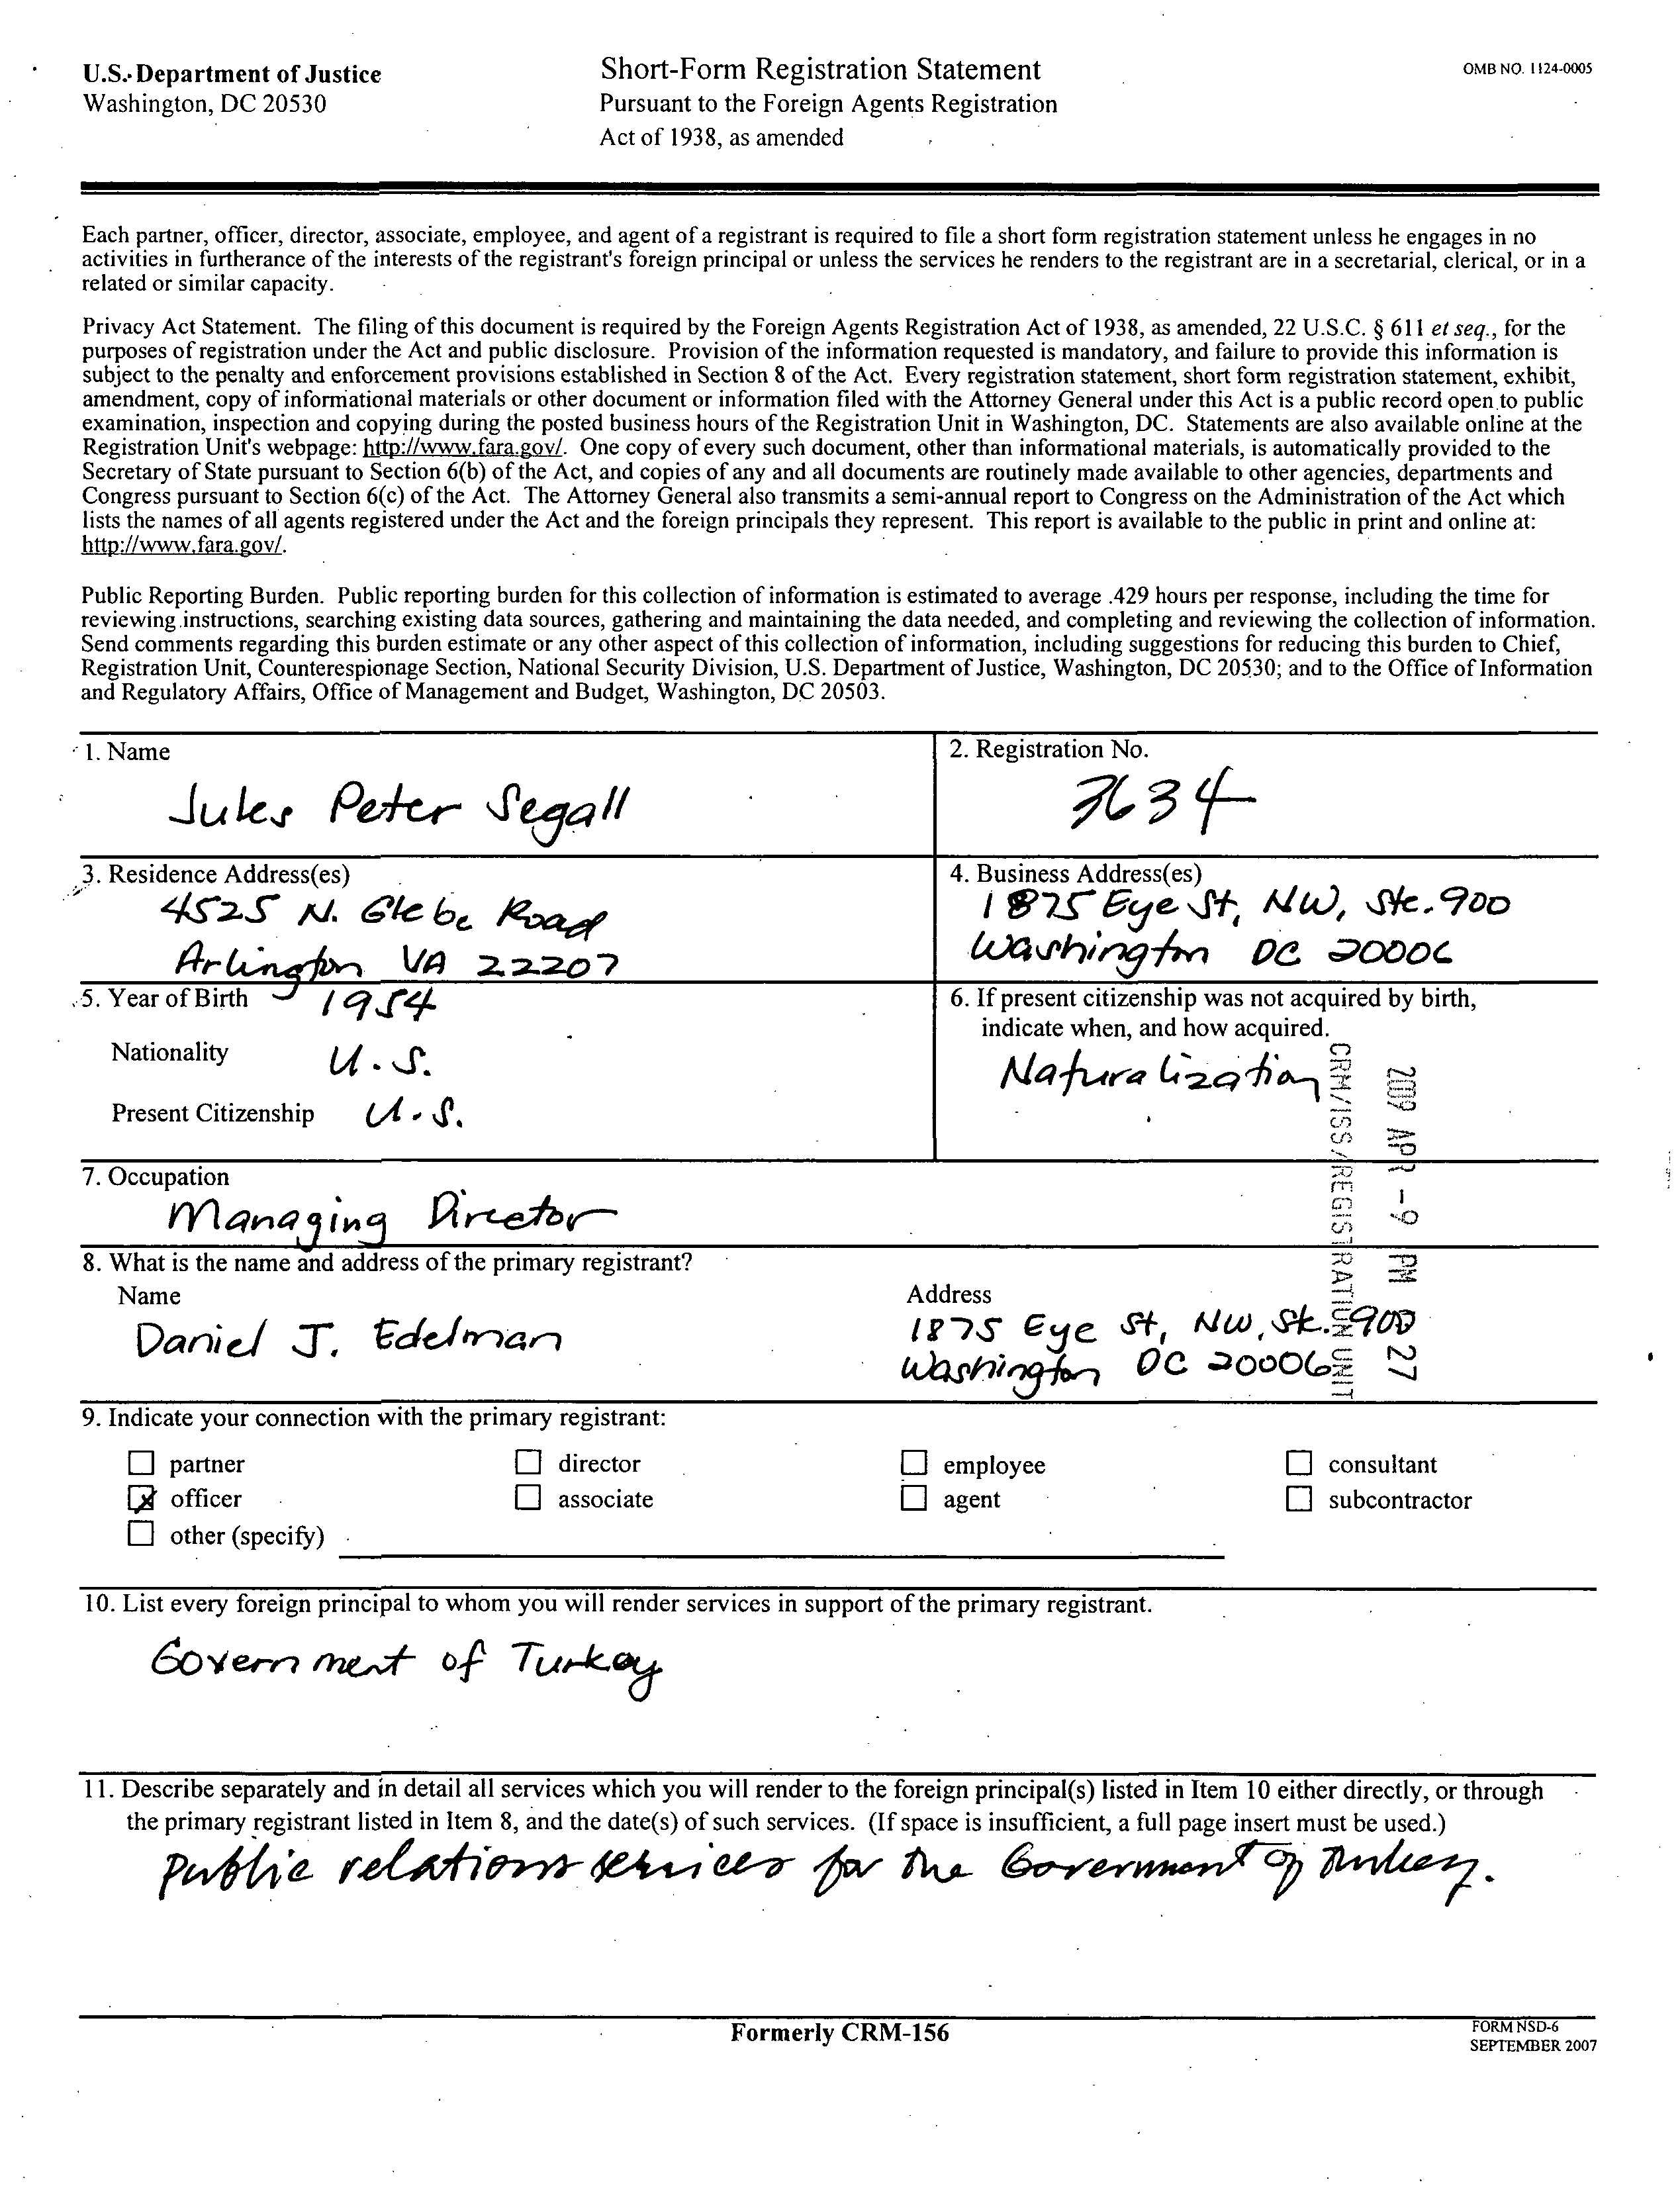 U.S. Department of Justice
Washington, DC 20530
Short-Form Registration Statement
Pursuant to the Foreign Agents Registration
Act of 1938, as amended
OMB NO. 1124-0005
Each partner, officer, director, associate, employee, and agent of a registrant is required to file a short form registration statement unless he engages in no
activities in furtherance of the interests of the registrant's foreign principal or unless the services he renders to the registrant are in a secretarial, clerical, or in a
related or similar capacity.
Privacy Act Statement. The filing of this document is required by the Foreign Agents Registration Act of 1938, as amended, 22 U.S.C. § 611 et seq., for the
purposes of registration under the Act and public disclosure. Provision of the information requested is mandatory, and failure to provide this information is
subject to the penalty and enforcement provisions established in Section 8 of the Act. Every registration statement, short form registration statement, exhibit,
amendment, copy of informational materials or other document or information filed with the Attorney General under this Act is a public record open to public
examination, inspection and copying during the posted business hours of the Registration Unit in Washington, DC. Statements are also available online at the
Registration Unit's webpage: http://www.fara.gov/. One copy of every such document, other than informational materials, is automatically provided to the
Secretary of State pursuant to Section 6(b) of the Act, and copies of any and all documents are routinely made available to other agencies, departments and
Congress pursuant to Section 6(c) of the Act. The Attorney General also transmits a semi-annual report to Congress on the Administration of the Act which
lists the names of all agents registered under the Act and the foreign principals they represent. This report is available to the public in print and online at:
http://www.fara.gov/.
Public Reporting Burden. Public reporting burden for this collection of information is estimated to average .429 hours per response, including the time for
reviewing instructions, searching existing data sources, gathering and maintaining the data needed, and completing and reviewing the collection of information.
Send comments regarding this burden estimate or any other aspect of this collection of information, including suggestions for reducing this burden to Chief,
Registration Unit, Counterespionage Section, National Security Division, U.S. Department of Justice, Washington, DC 20530; and to the Office of Information
and Regulatory Affairs, Office of Management and Budget, Washington, DC 20503.
1. Name
Jules Peter Segall
2. Registration No.
3634
3. Residence Address(es)
4525 N. Glebe Road
Arlington VA 22207
4. Business Address(es)
1875 Eye St, NW, Ste. 900
Washington DC 20006
5. Year of Birth 1954
Nationality U.S.
Present Citizenship U.S.
6. If present citizenship was not acquired by birth,
indicate when, and how acquired.
Naturalization
CRM/ISS/REGISTRATION UNIT
2009 APR -9 PM 27
7. Occupation
Managing Director
8. What is the name and address of the primary registrant?
Name
Daniel J. Edelman
Address
1875 Eye St, NW, Ste. 900
Washington DC 20006
9. Indicate your connection with the primary registrant:
partner director employee consultant
officer associate agent subcontractor
other (specify)
10. List every foreign principal to whom you will render services in support of the primary registrant.
Government of Turkey
11. Describe separately and in detail all services which you will render to the foreign principal(s) listed in Item 10 either directly, or through
the primary registrant listed in Item 8, and the date(s) of such services. (If space is insufficient, a full page insert must be used.)
Public relations services for the Government of Turkey.
Formerly CRM-156
FORM NSD-6
SEPTEMBER 2007